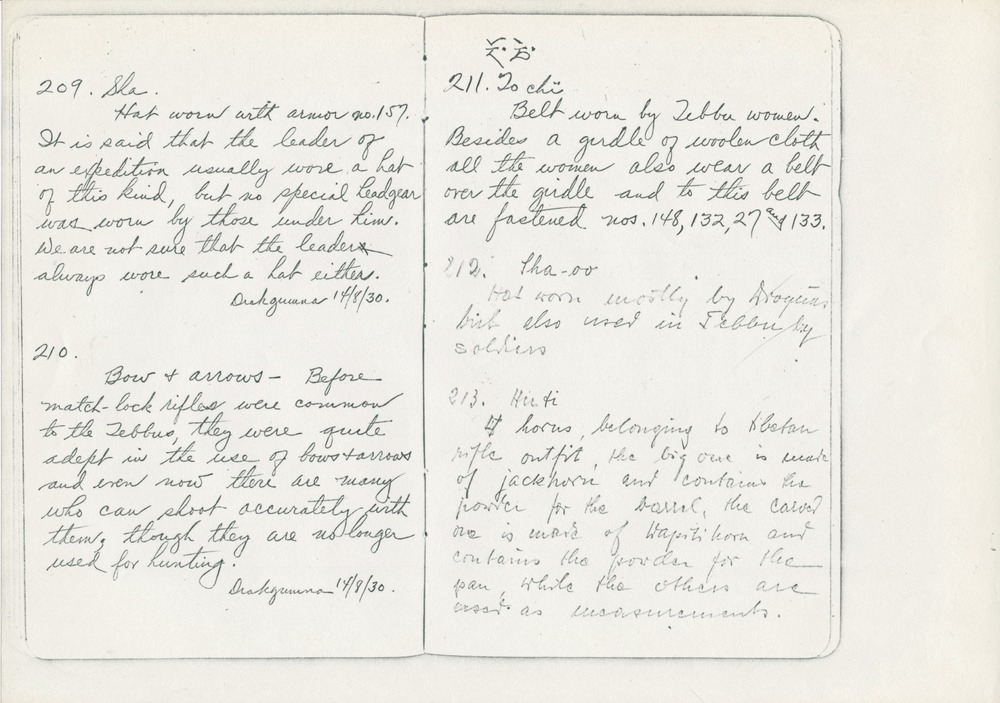 209. Sha.
Hat worn with armor no. 157.
It is said that the leader of
an expedition usually wore a hat
of this kind, but no special headgear
was worn by those under him.
We are not sure that the leader
always wore such a hat either.
Drakgumna 14/8/30.
210.
Bow & arrows – Before
match-lock rifles were common
to the Tebbus, they were quite
adept in the use of bows & arrows
and even now there are many
who can shoot accurately with
them, though they are no longer
used for hunting.
Drakgumna 14/8/30.
211. To chi
Belt worn by Tebbu women.
Besides a girdle of woolen cloth
all the women also wear a belt
over the girdle and to this belt
are fastened nos. 148, 132, 27 and 133.
212. Sha-oo
Hat worn mostly by Droquas
but also used in Tebbu by
soldiers
213.
4 horns, belonging to tibetan
rifle outfit, the big one is made
of jackhorn and contains the
powder for the barrel, the carved
one is made of Wapitihorn and
contains the powder for the
pan, while the others are
used as measurements.